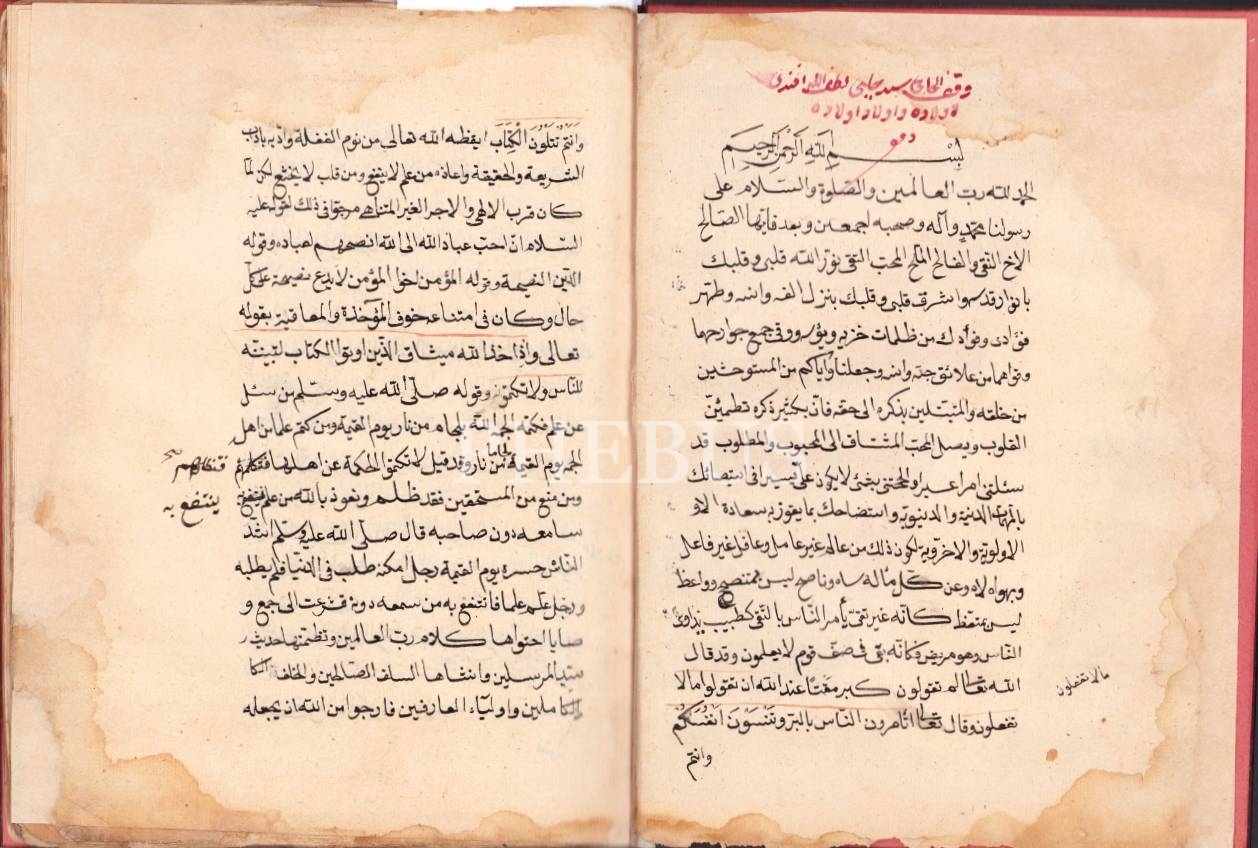 وقف الحاج سيد چلبی لطف الله افندی
لاولاده واولاد اولاده
بسم الله الرحمن الرحيم
الحمد لله رب العالمين والصلوة والسلام على
رسولنا محمد وآله وصحبه اجمعين وبعد فايها الصالح
الاخ التقى والفالح المحب النقى نوّر الله قلبى وقلبك
بانوار قدسه واشرق قلبى وقلبك بنزل الفه وانسه وطهر
فؤادى وفؤادك من ظلمات جمع جوارحها
وقواهما من علائق وانسه وجعلنا واياكم من المستوحشين
من خلقه والمتبتلين بذكره الى حقه فان بكثير ذكره تطمئن
القلوب ويصل المحب المشتاق الى المحبوب والمطلوب قد
سئلتنى امرا عسيرا لا يكون على يسيرا فى استنصاحك
بالمهمات الدينية والدنيوية واستنصاحك بما يفوز به سعادة الاو
الاولوية والاخروية لكون ذلك من عالم غير عامل وعاقل غير فاعل
وبهواه لاه وعن كل ماله ساه وناصح ليس بمتنصح وواعظ
ليس بمتعظ كانه غير تقى يأمر الناس بالتقى كطبيب يداوى
الناس وهو مريض فكانه فى صف قوم لا يعلمون وقد قال
الله تعالى لم تقولون كبر مقتا عند الله ان تقولوا ما لا
ما لا تفعلون
تفعلون وقال تعالى اتأمرون الناس بالبر وتنسون انفسكم
وانتم
وانتم تتلون الكتاب ايقظه الله تعالى من نوم الغفلة وادبه باداب
الشريعة والحقيقة واعاذه من علم لا ينفع ومن قلب لا يخشع لكن لما
كان قرب الالهى والاجر الغير المتناهى مرجوا فى ذلك لقوله عليه
السلام ان احب عباد الله الى الله انصحهم لعباده وقوله
الدين النصيحة وقوله المؤمن اخو المؤمن لا يدع نصيحته على كل
حال وكان فى امتناعه خوف المؤآخذة والمعاقبة بقوله
تعالى واذ اخذ الله ميثاق الذين اوتوا الكتاب لتبيننه
للناس ولا تكتمونه وقوله صلى الله عليه وسلم من سئل
عن علم فكتمه الجمه الله بلجام من نار يوم القيمة ومن كتم علما من اهله
الجم يوم القيمة لجاما من نار وقد قيل لا تكتموا الحكمة عن اهلها فتظلموهم
فتظلموهم صح
ومن منع من المستحقين فقد ظلم ونعوذ بالله من علم ينتفع
ينتفع به
سامعه دون صاحبه قال صلى الله عليه وسلم اشد
الناس حسرة يوم القيمة رجل امكنه طلب فى الدنيا فلم يطلبه
ورجل علم علما فانتفع به من سمعه دونه فشرعت الى جمع و
صايا احتواها كلام رب العالمين وتطمنها حديث ر
سيد المرسلين وانشاها السلف الصالحين والخلفاء الكا
الكاملين واولياء العارفين فارجوا من الله ان يجعله
PHEBUS